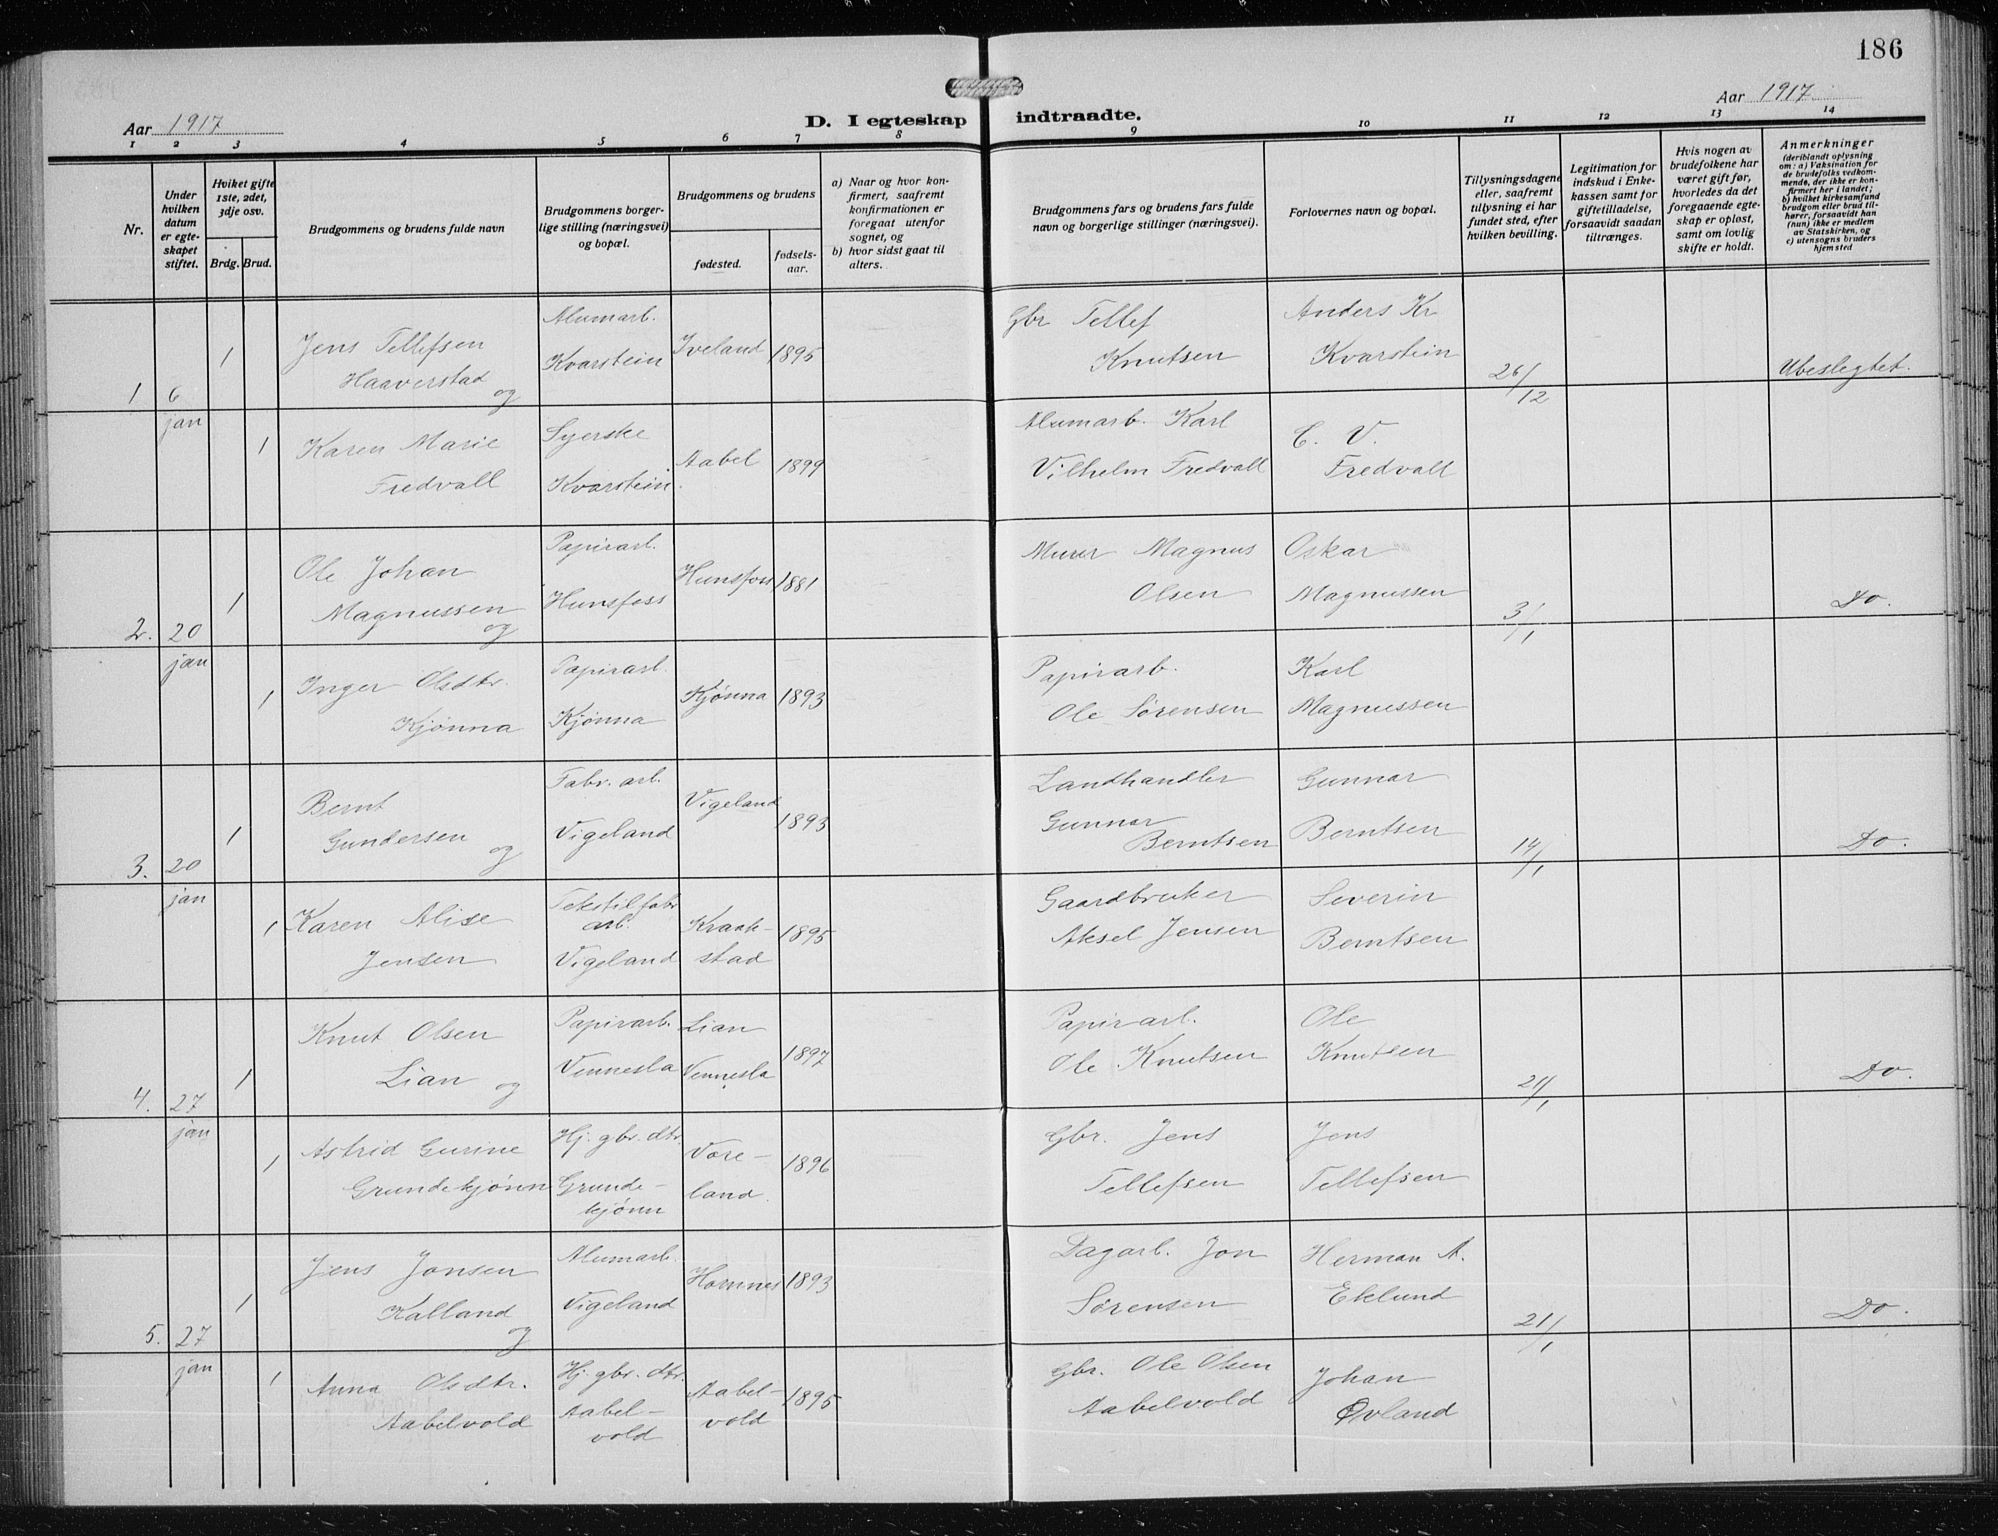 186
Aar 1917
D. I egteskap indtraadte.
Aar 1917
1 2 3 4 5 6 7 8 9 10 11 12 13 14
Nr.
Under hvilken datum er egteskapet stiftet.
Hviket gifte 1ste, 2det, 3dje osv.
Brdg. Brud.
Brudgommens og brudens fulde navn
Brudgommens borgerlige stilling (næringsvei) og bopæl.
Brudgommens og brudens
fødested.
fødselsaar.
a) Naar og hvor konfirmert, saafremt konfirmationen er foregaat utenfor sognet, og
b) hvor sidst gaat til alters.
Brudgommens fars og brudens fars fulde navn og borgerlige stillinger (næringsvei).
Forlovernes navn og bopæl.
Tillysningsdagene eller, saafremt tillysning ei har fundet sted, efter hvilken bevilling.
Legitimation for indskud i Enkekassen samt for giftetilladelse, forsaavidt saadan tiltrænges.
Hvis nogen av brudefolkene har været gift før, hvorledes da det foregaaende egteskap er opløst, samt om lovlig skifte er holdt.
Anmerkninger
(deriblandt oplysning om: a) Vaksination for de brudefolks vedkommende, der ikke er konfirmert her i landet; b) hvilket kirkesamfund brudgom eller brud tilhører, forsaavidt han (hun) ikke er medlem av Statskirken, og c) utensogns bruders hjemsted
1 6 jan 1 Jens Tellefsen Haaverstad og Alumarb. Kvarstein Iveland 1895 Gbr Tellef Knutsen Anders Kr Kvarstein 26/12 Ubeslegtet.
1 Karen Marie Fredvall Syerske Kvarstein. Aabel 1899 Alumarb. Karl Vilhelm Fredvall C. V. Fredvall
2. 20 jan 1 Ole Johan Magnussen og Papirarb. Hunsfoss Hunsfoss 1881 Murer Magnus Olsen Oskar Magnussen 3/1 Do.
1 Inger Olsdtr. Kjønna Papirarb. Kjønna Kjønna 1893 Papirarb. Ole Sørensen Karl Magnussen
3. 20 jan 1 Bernt Gundersen og Fabr. arb. Vigeland Vigeland 1893 Landhandler Gunnar Berntsen Gunnar Berntsen 14/1 Do.
1 Karen Alise Jensen Tekstilfabr arb. Vigeland Kraakstad 1895 Gaardbruker Aksel Jensen Severin Berntsen
4. 27 jan 1 Knut Olsen Lian og Papirarb. Vennesla Lian Vennesla 1897 Papirarb. Ole Knutsen Ole Knutsen 21/1 Do.
1 Astrid Gurine Grundekjønn Hj. gbr. dtr. Grundekjønn Voreland. 1896 Gbr. Jens Tellefsen Jens Tellefsen
5. 27 jan 1 Jens Jonsen Kalland og Alumarb. Vigeland Hornnes 1893 Dagarb. Jon Sørensen Herman A. Eklund 21/1 Do.
1 Anna Olsdtr. Aabelvold Hj. gbr. dtr. Aabelvold Aabelvold 1895 Gbr. Ole Olsen Aabelvold Johan Øvland